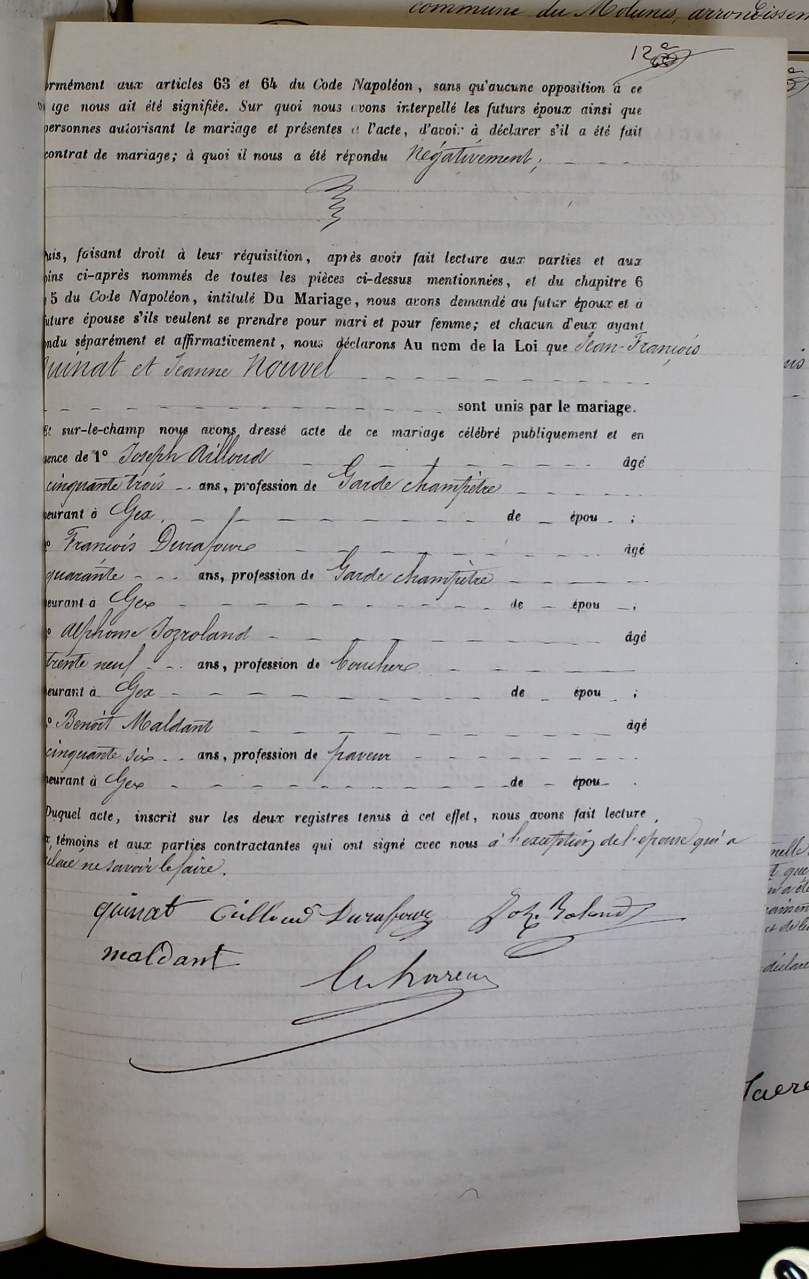 commune du Molunes, arrondissem
12e
ormément aux articles 63 et 64 du Code Napoléon, sans qu'aucune opposition à ce
age nous ait été signifiée. Sur quoi nous avons interpellé les futurs époux ainsi que
personnes autorisant le mariage et présentes à l'acte, d'avoir à déclarer s'il a été fait
contrat de mariage; à quoi il nous a été répondu Négativement;
uis, faisant droit à leur réquisition, après avoir fait lecture aux parties et aux
oins ci-après nommés de toutes les pièces ci-dessus mentionnées, et du chapitre 6
5 du Code Napoléon, intitulé Du Mariage, nous avons demandé au futur époux et à
future épouse s'ils veulent se prendre pour mari et pour femme; et chacun d'eux ayant
ondu séparément et affirmativement, nous déclarons Au nom de la Loi que Jean-François
Quinat et Jeanne Nouvel
sont unis par le mariage.
Et sur-le-champ nous avons dressé acte de ce mariage célébré publiquement et en
sence de 1° Joseph Ailloud âgé
cinquante trois ans, profession de Garde champêtre
meurant à Gex de épou ;
François Durafour âgé
quarante ans, profession de Garde champêtre
meurant à Gex de épou ;
alphonse Jozroland âgé
trente neuf ans, profession de boucher
meurant à Gex de épou ;
Benoit Maldant âgé
cinquante six ans, profession de paveur
meurant à Gex de épou .
Duquel acte, inscrit sur les deux registres tenus à cet effet, nous avons fait lecture
x témoins et aux parties contractantes qui ont signé avec nous à l'exception de l'épouse qui a
claré ne savoir le faire.
quinat ailloud Durafour Joz. Roland
maldant